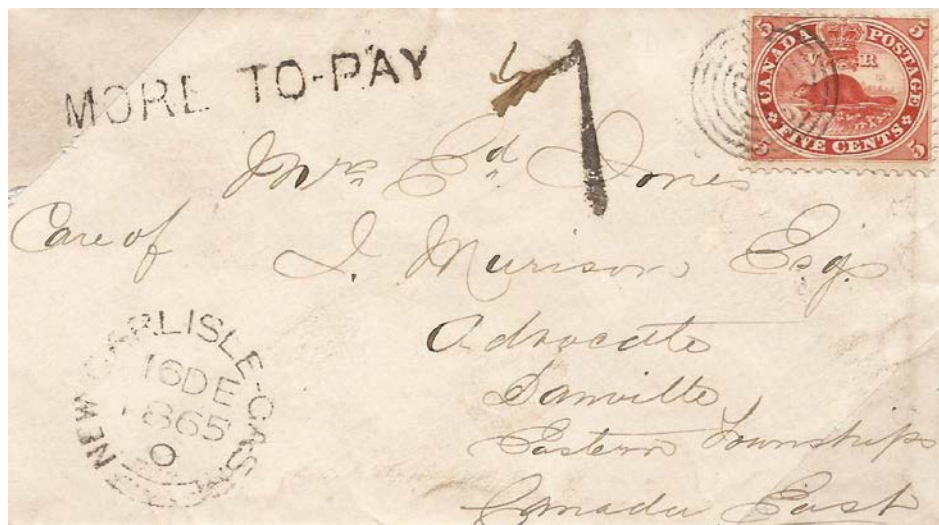 MORE TO-PAY
7
5 5
CANADA POSTAGE
V R
FIVE CENTS
5 5
Mrs Ed Jones
Care of J. Murison Esq.
Advocate
Danville
Eastern Townships
Canada East
NEW CARLISLE-GASP
16 DE
1865